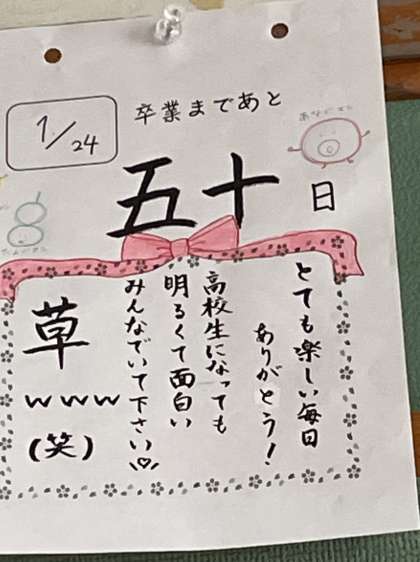 1/24
卒業まであと
五十日
とても楽しい毎日
ありがとう!
高校生になっても
明るくて面白い
みんなでいて下さい♡
草
www
(笑)